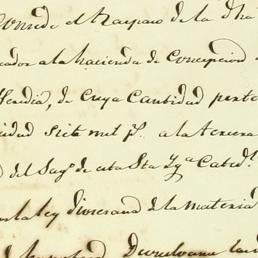 Conrede el traspaso de la dha
cador a la hacienda de Concepcion
Heredia, de cuya Cantidad perte
cidad siete mil p.s a la tercera
del Sag.o de esta Sta Yg.a Cated.l
la ley diocesana de la materia